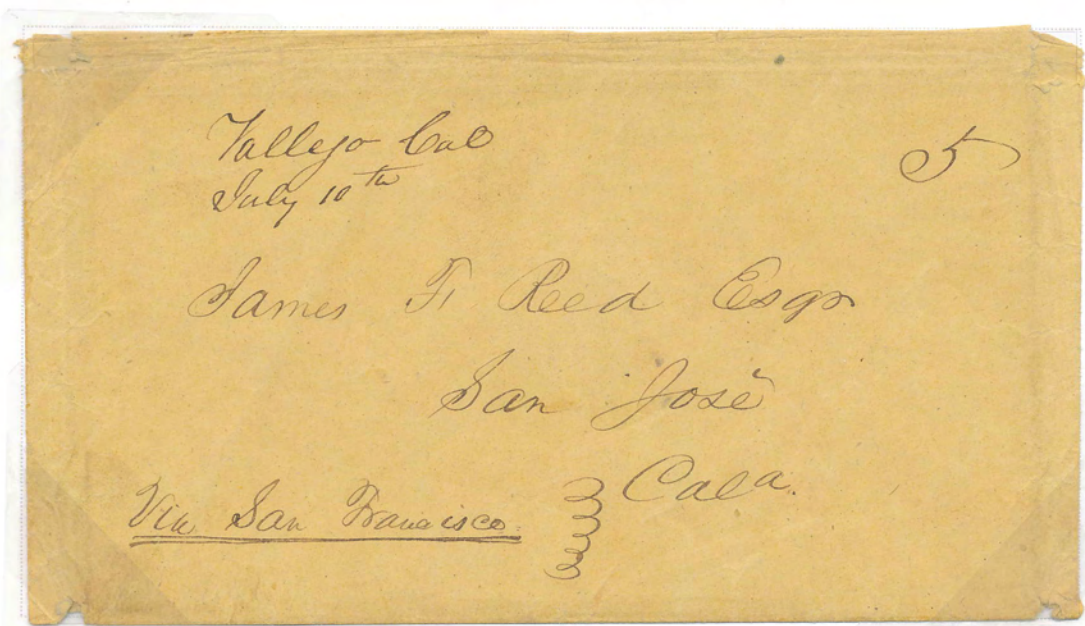 Vallejo Cal
July 10th
5
James F Reed Esqr
San José
Cala.
Via San Francisco